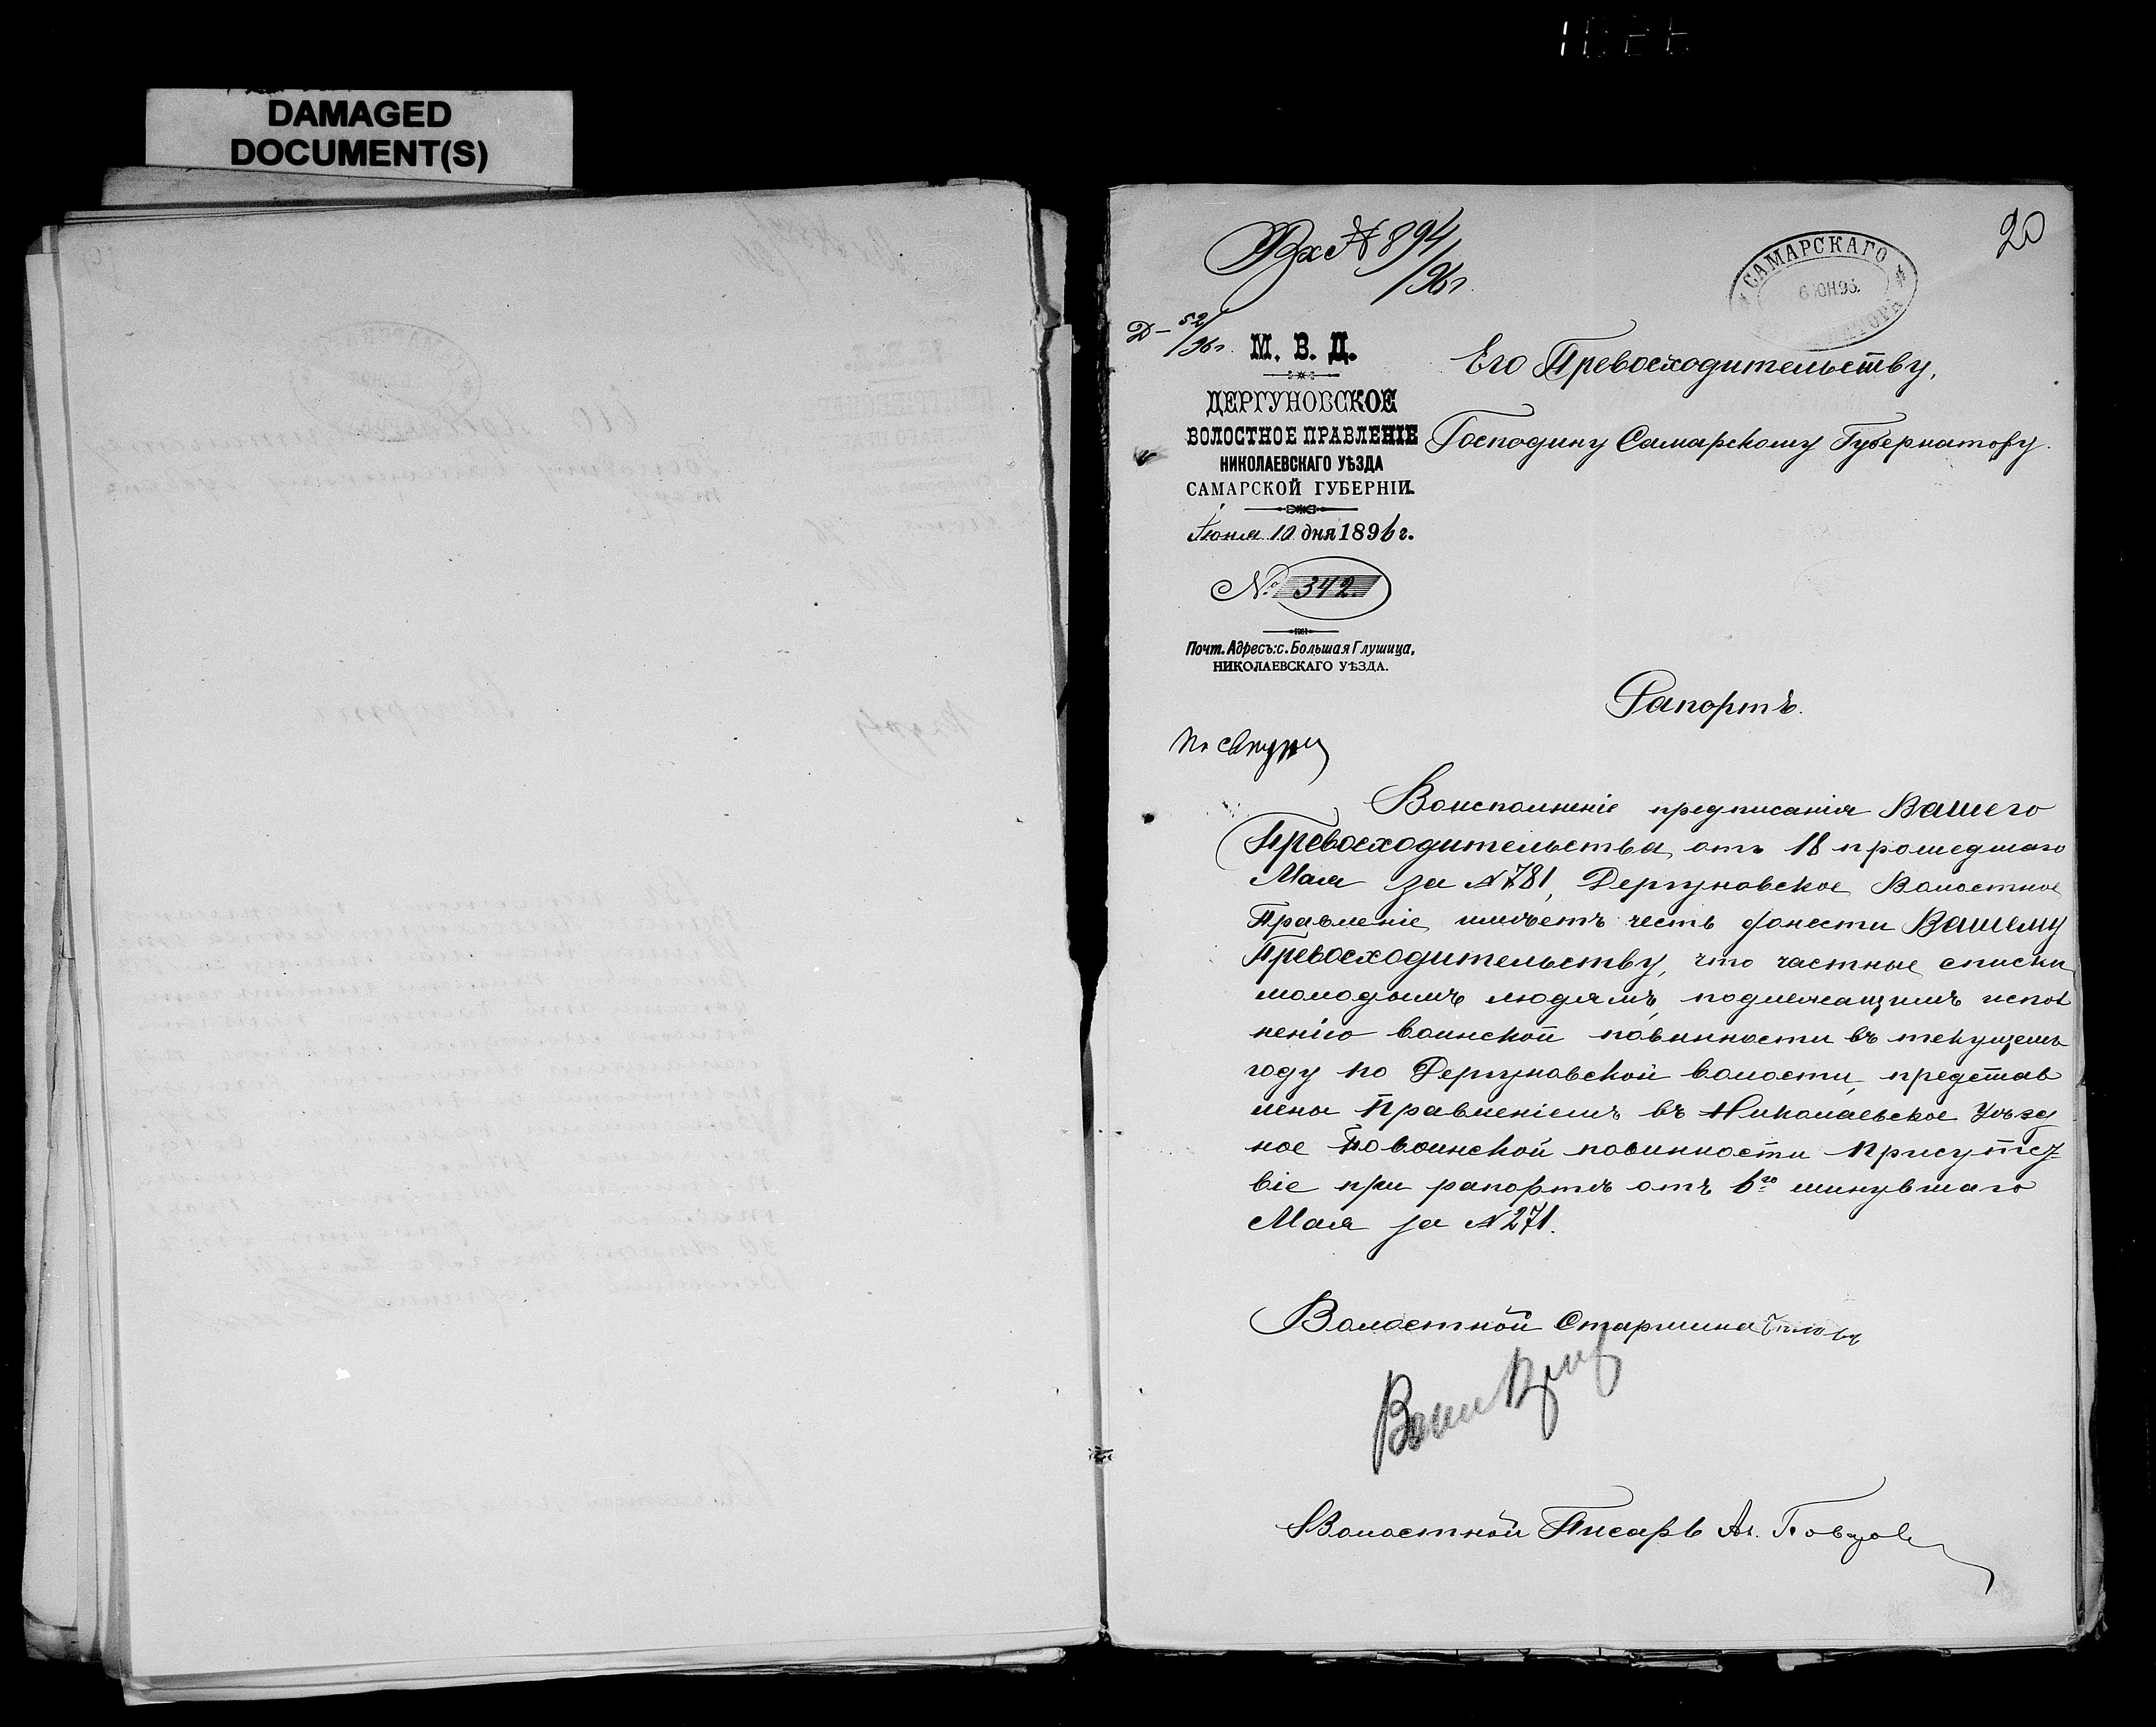 DAMAGED
DOCUMENT(S)
20
Вх № 894/96 г.
САМАРСКАГО
Д – 52/96 г.
М. В. Д.
ДЕРГУНОВСКОЕ
ВОЛОСТНОЕ ПРАВЛЕНІЕ
НИКОЛАЕВСКАГО УѢЗДА
САМАРСКОЙ ГУБЕРНІИ.
Іюня 10 дня 1896 г.
№ 342.
Почт. Адресъ: с. Большая Глушица,
НИКОЛАЕВСКАГО УѢЗДА.
Его Превосходительству,
Господину Самарскому Губернатору.
Рапортъ.
Воисполненіе предписанія Вашего
Превосходительства отъ 18 прошедшаго
Мая за № 781, Дергуновское Волостное
Правленіе имѣетъ честь донести Вашему
Превосходительству, что частные списки
молодымъ людямъ, подлежащимъ испол
ненію воинской повинности въ текущемъ
году по Дергуновской волости, представ
лены Правленіемъ въ Николаевское Уѣзд
ное По воинской повинности Присутст
віе при рапортѣ отъ 6го минувшаго
Мая за № 271.
Волостной Старшина
Волостной Писарь